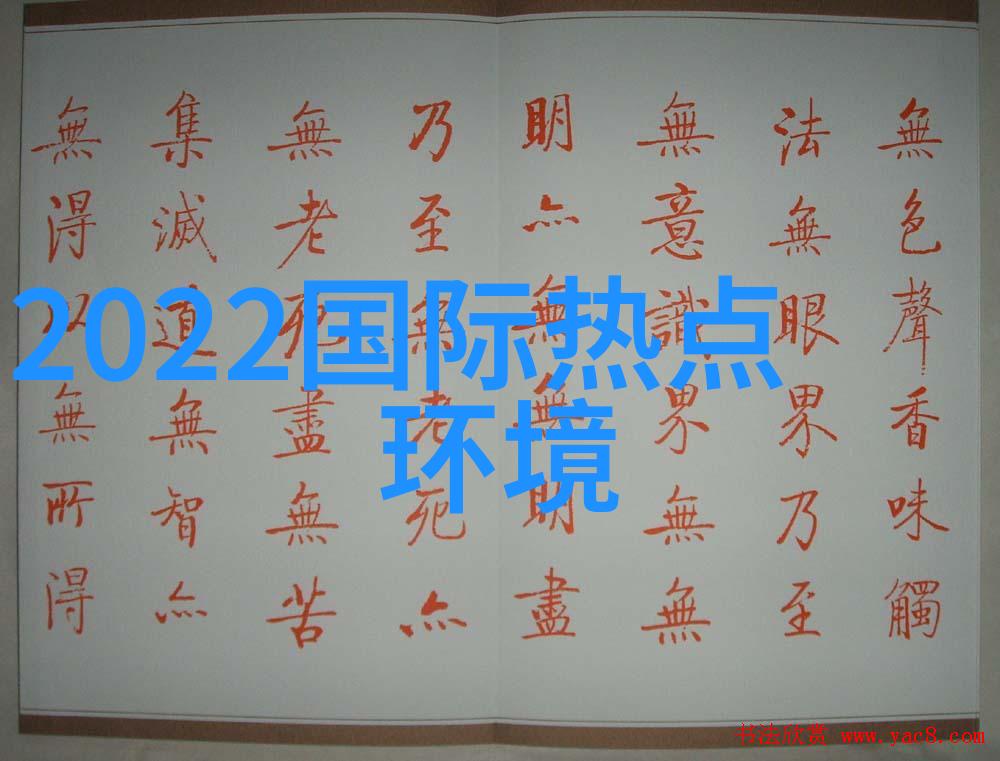 無色聲香味觸
法無眼界乃至
無意識界無無
明亦無無明盡
乃至無老死亦
無老死盡無苦
集滅道無智亦
無得以無所得
2022国际热点
环境
书法欣赏 www.yac8.com